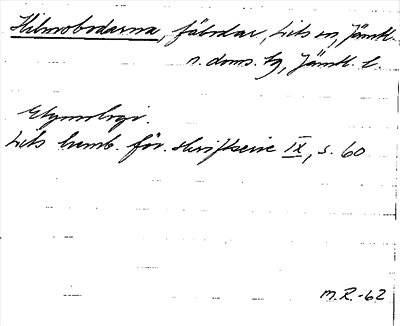 Kilmobodarna, fäbodar, Lits sn, Jämtl.
n. doms. tg, Jämtl. l.
Etymologi.
Lits hemb. för. skriftserie IX, s. 60
M.R.-62